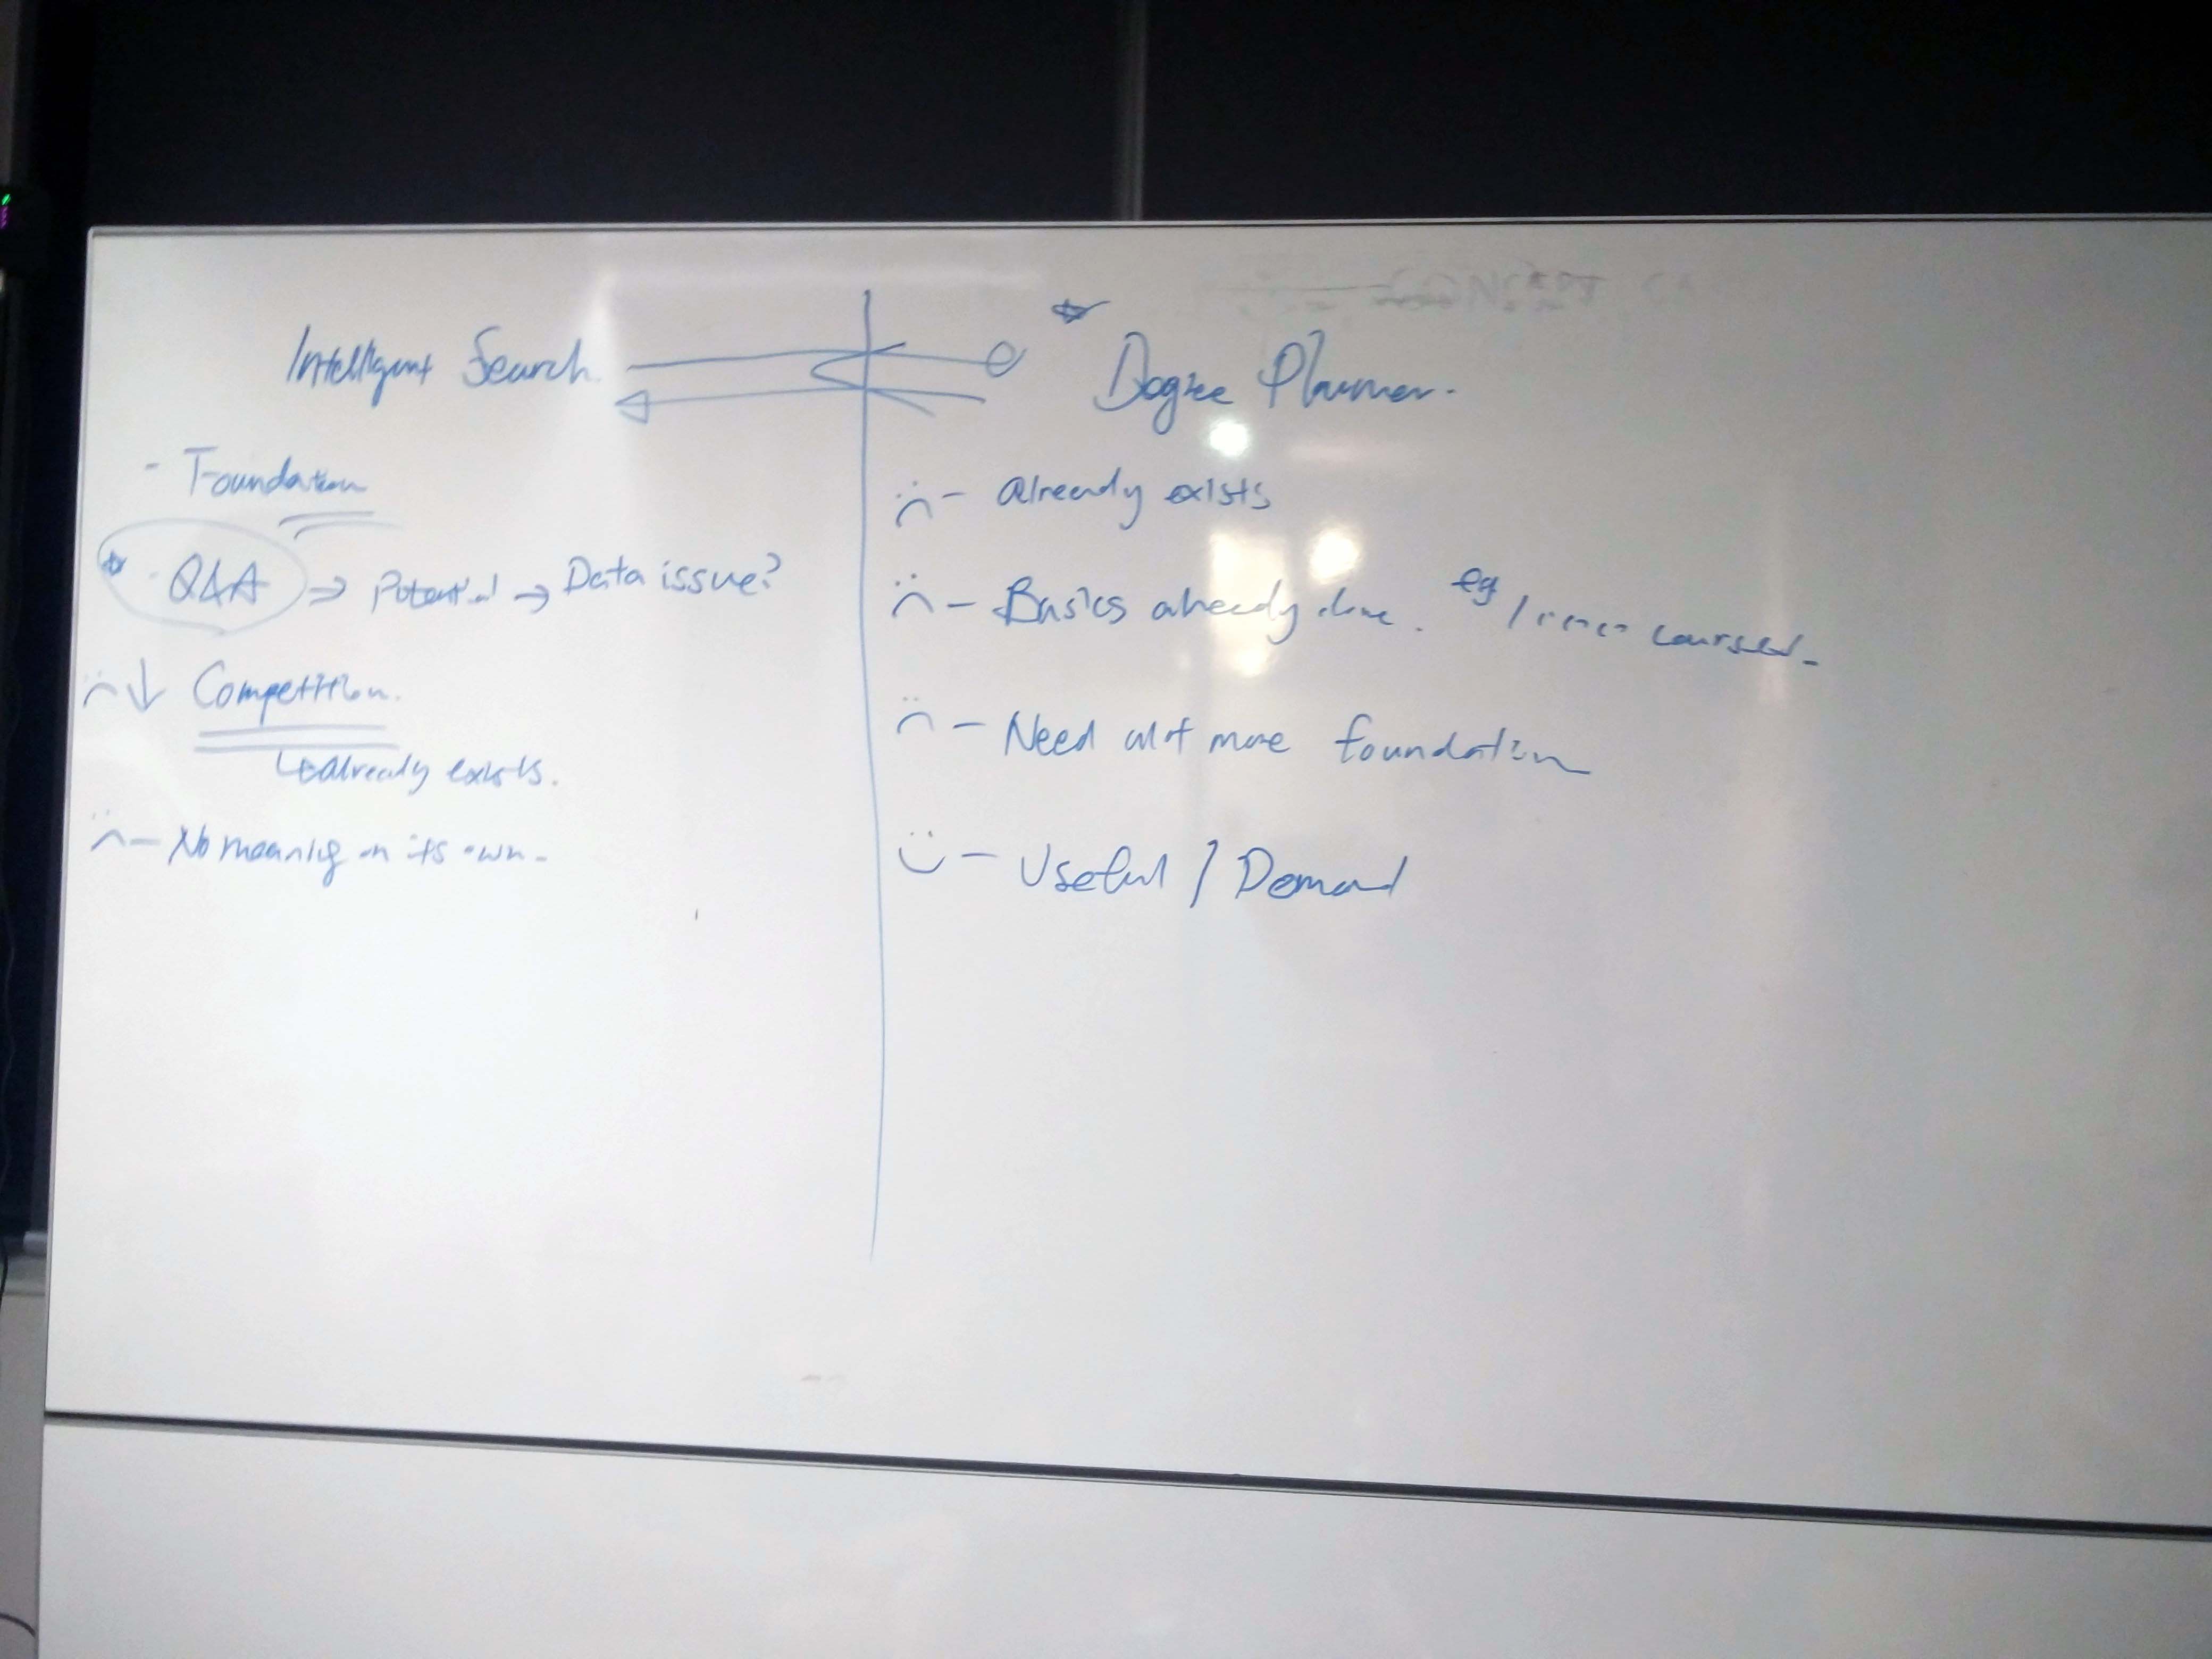 Intelligent Search.
- Foundation
Q&A ⇒ Potential → Data issue?
↓ Competition.
↳ already exists.
- No meaning on its own.
Degree Planner.
- Already exists
- Basics already done. eg courses.
- Need alot more foundation
- Useful / Demand